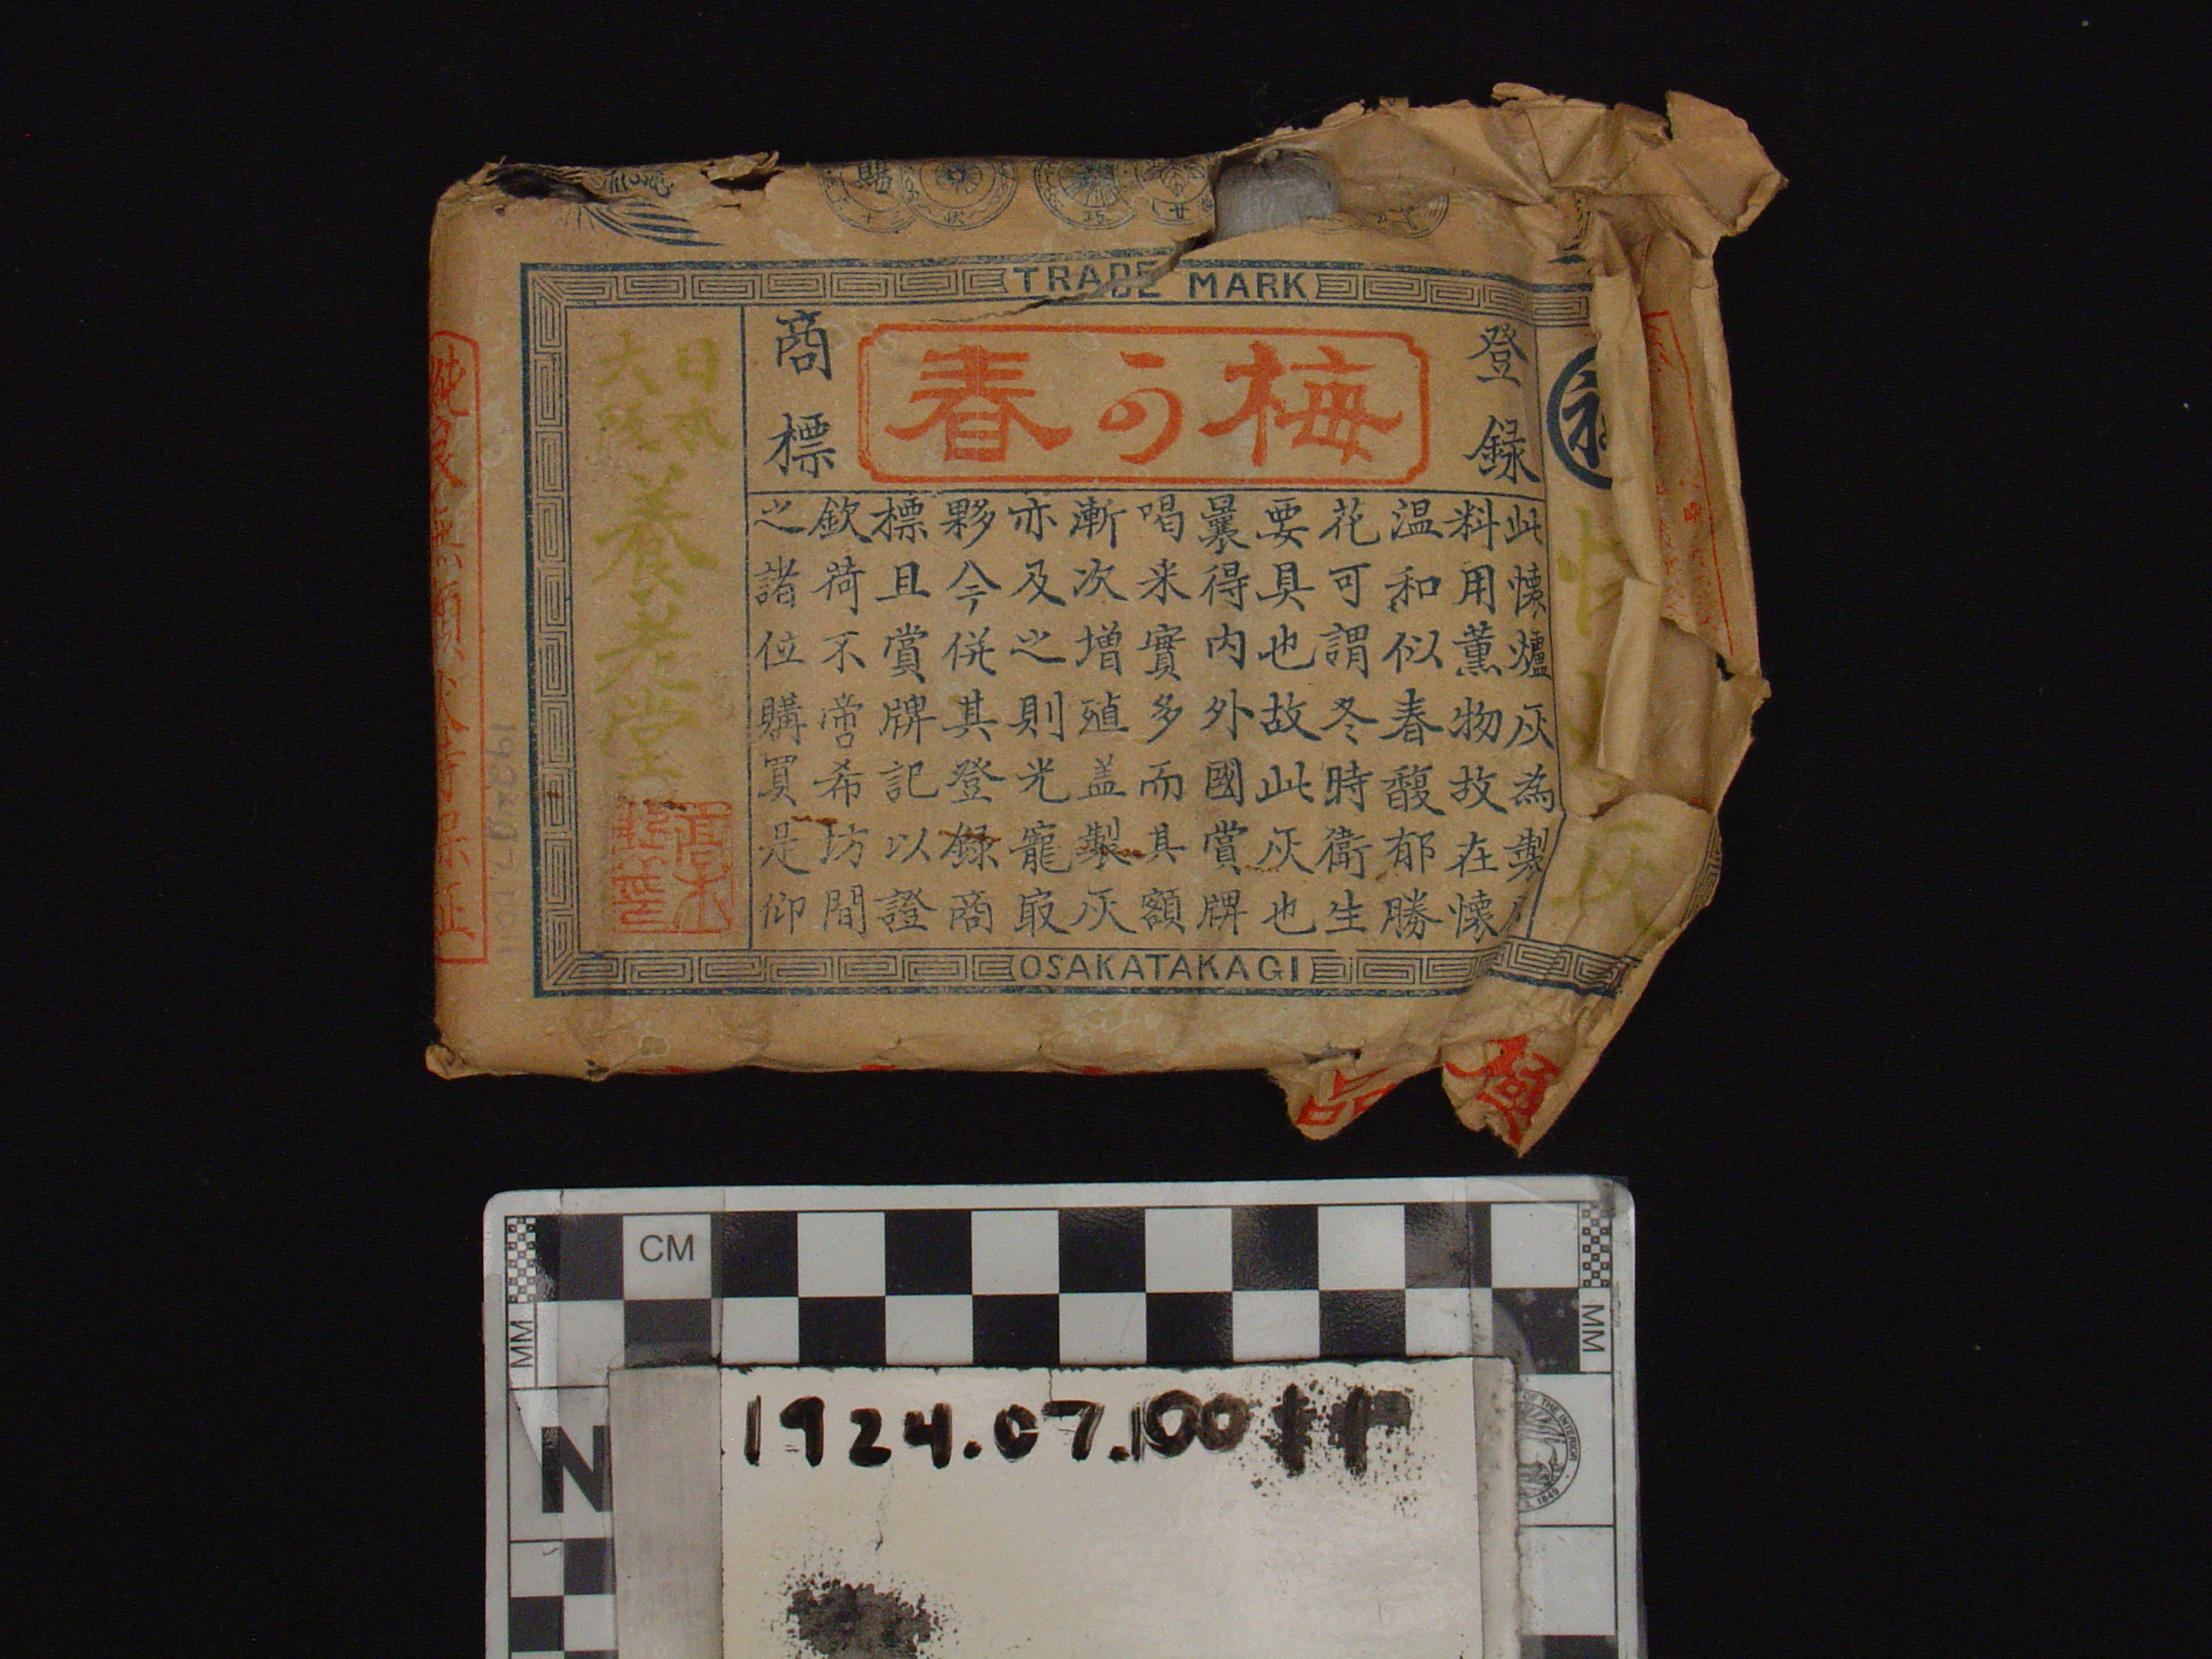 TRADE MARK
登録
梅可春
商標
此懐爐灰為製
料用薫物故在懐
温和似春馥郁勝
花可謂冬時衛生
要具也故此灰也
曩得内外國賞牌
喝采實多而其額
漸次増殖盖製灰
亦及之則光寵㝡
夥今併其登録商
標且賞牌記以證
欽荷不啻希坊間
之諸位購買是仰
日本
大阪
養老堂
OSAKATAKAGI
賜
CM
MM
MM
N
1924.07.100